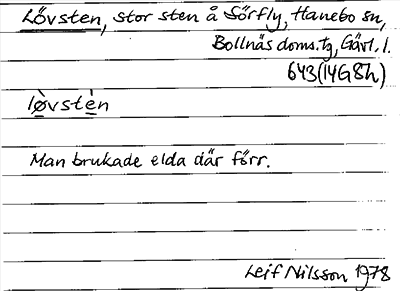 Lövsten, stor sten å Sörfly, Hanebo sn,
Bollnäs doms.tg, Gävl. l.
643(14G8h)
lø̀vstèn
Man brukade elda där förr.
Leif Nilsson 1978